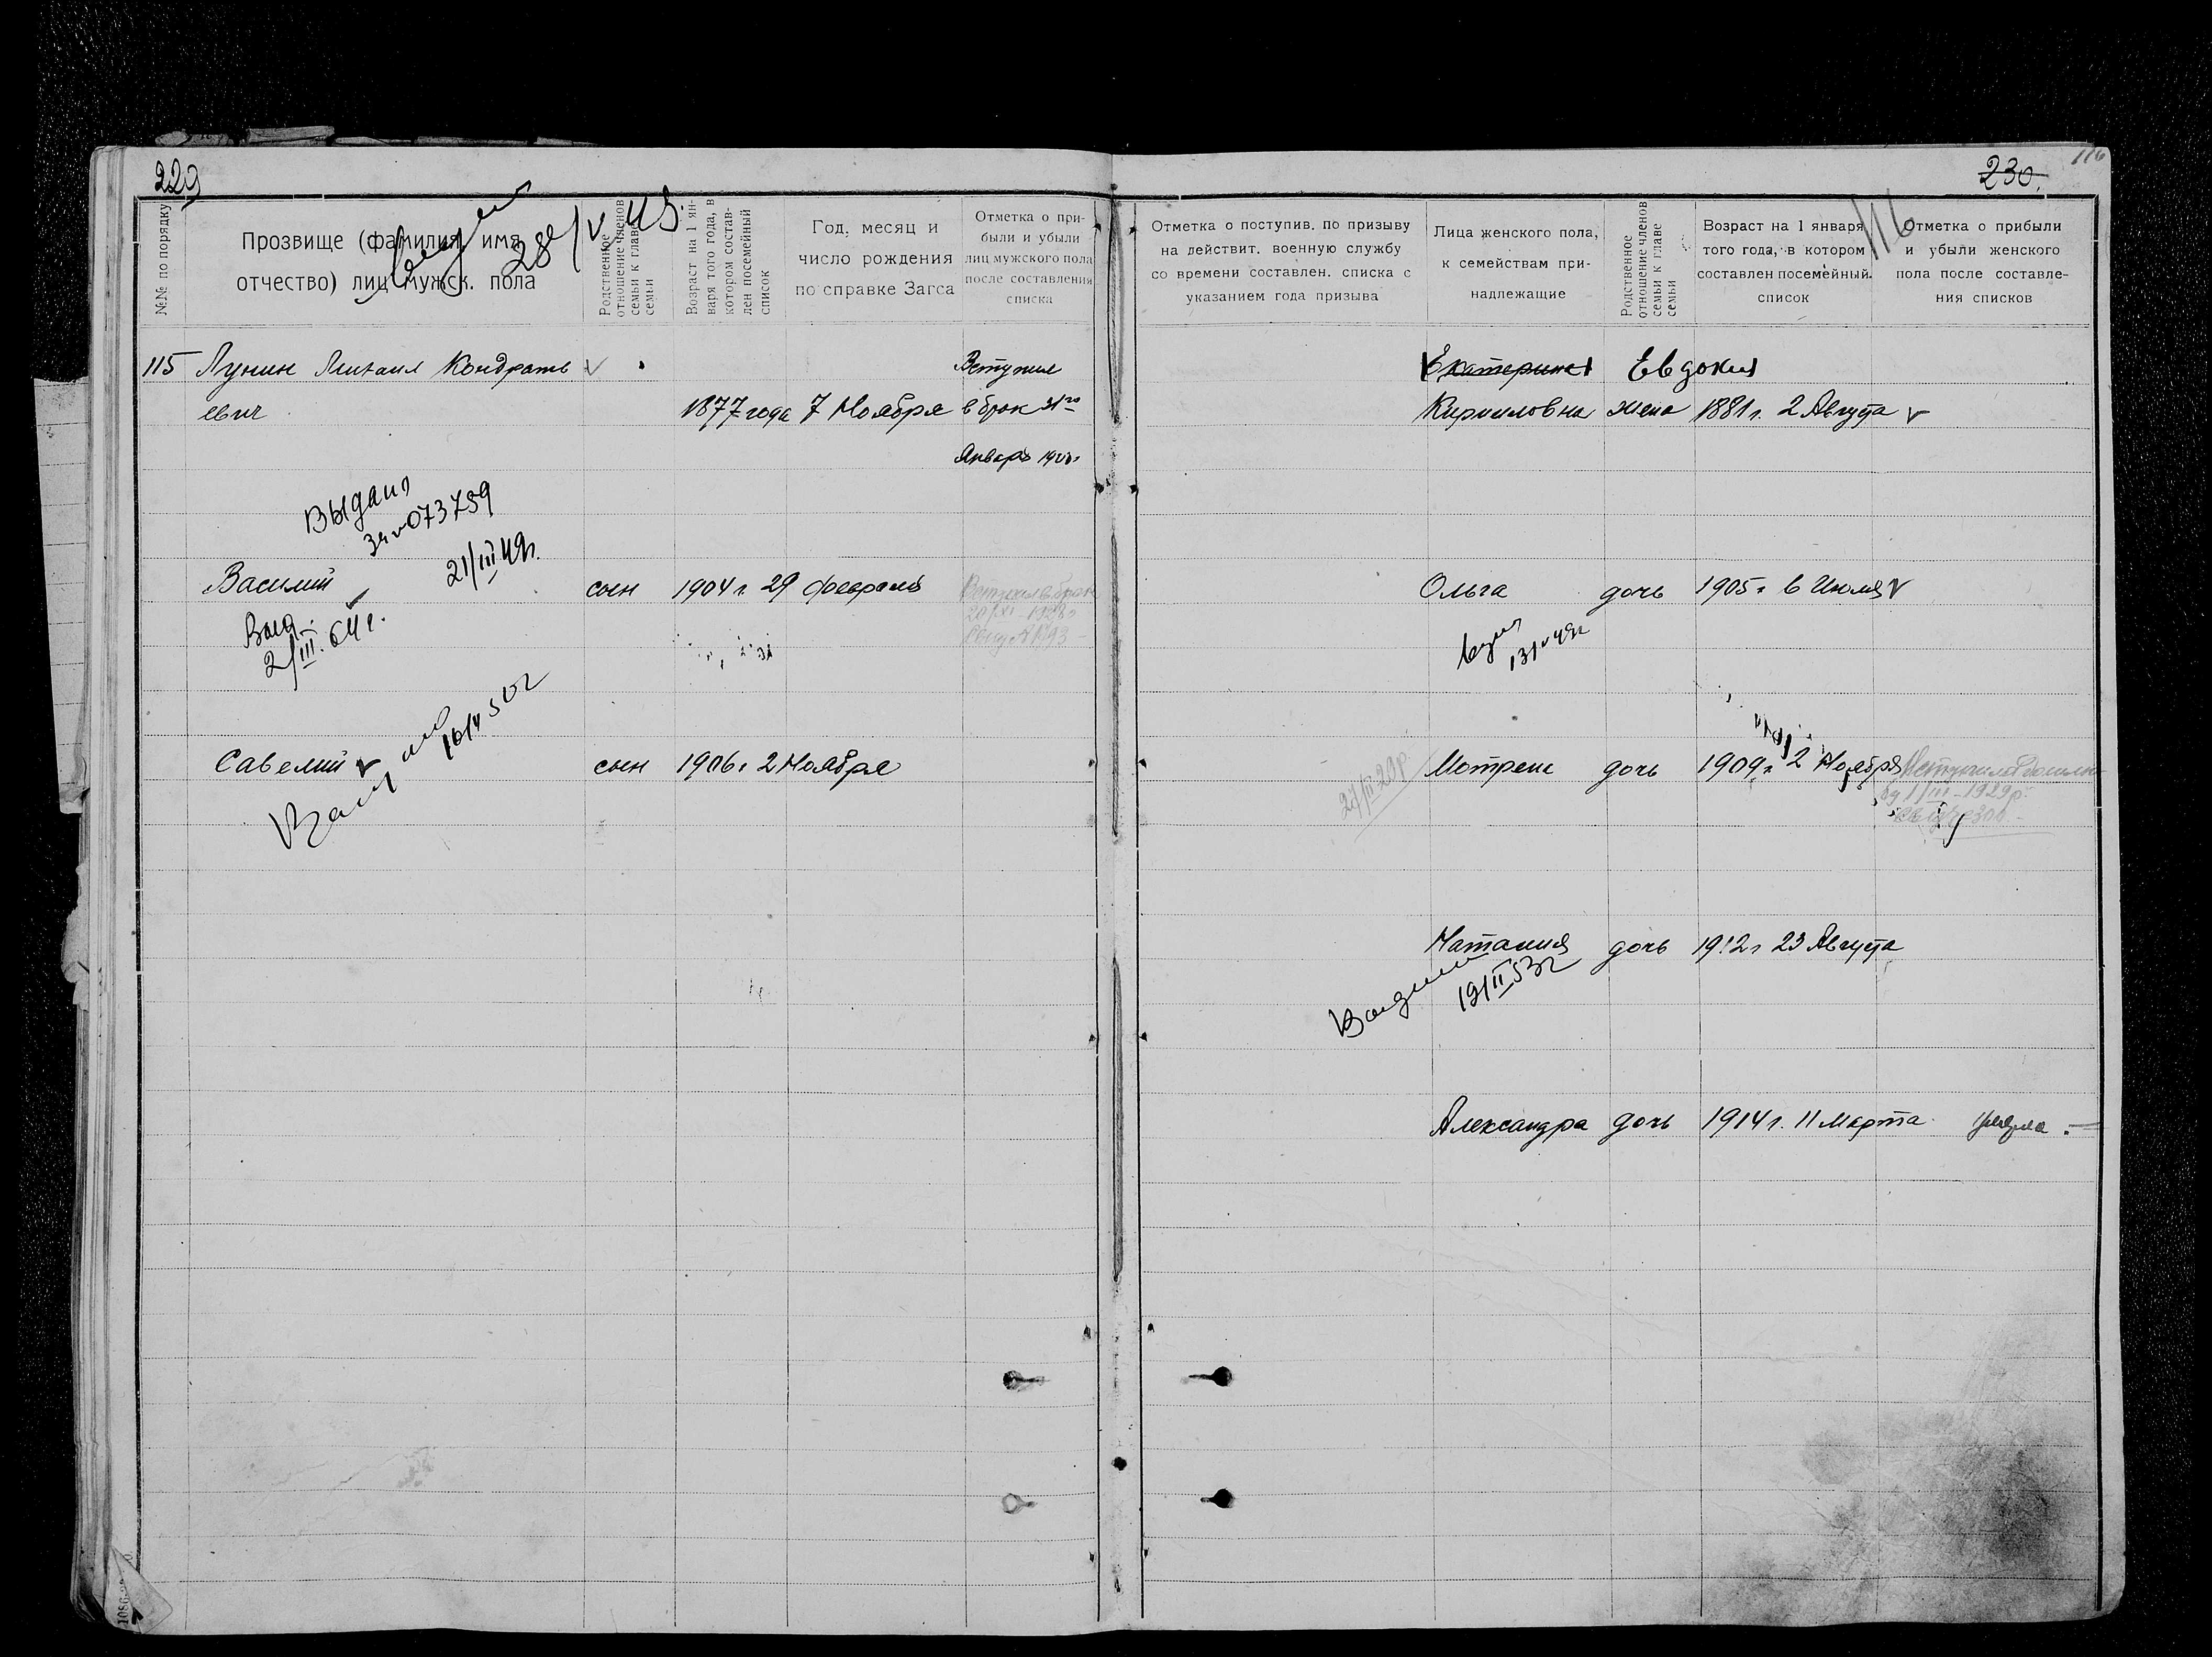 229
№№ по порядку
Прозвище (фамилия, имя,
отчество) лиц мужск. пола
28/V 45.
Родственное
отношение членов
семьи к главе
семьи
Возраст на 1 ян-
варя того года, в
котором состав-
лен посемейный
список
Год, месяц и
число рождения
по справке Загса
Отметка о при-
были и убыли
лиц мужского пола
после составления
списка
115 Лунин Михаил Кондрать
евич
1877 года 7 Ноября
Вступил
в брак 31го
Января
Выдана
073759
21/III 49г.
Василий
сын 1904 г. 29 февраля
Выд.
2/III. 64 г.
Вступил в брак
20/XI - 1928
Савелий
сын 1906 г. 2 Ноября
50г
230.
116
116
Отметка о поступив. по призыву
на действит. военную службу
со времени составлен. списка с
указанием года призыва
Лица женского пола,
к семействам при-
надлежащие
Родственное
отношение членов
семьи к главе
семьи
Возраст на 1 января
того года, в котором
составлен посемейный
список
Отметка о прибыли
и убыли женского
пола после составле-
ния списков
Екатерина Евдокия
Кирилловна жена 1881 г. 2 Августа
Ольга дочь 1905 г. 6 Июля
49г
Мотрена дочь 1909 г. 2 Ноября
27/III 29р
1/III - 1929р.
Наталия дочь 1912 г. 23 Августа
19/II 53г
Александра дочь 1914 г. 11 Марта умерла.